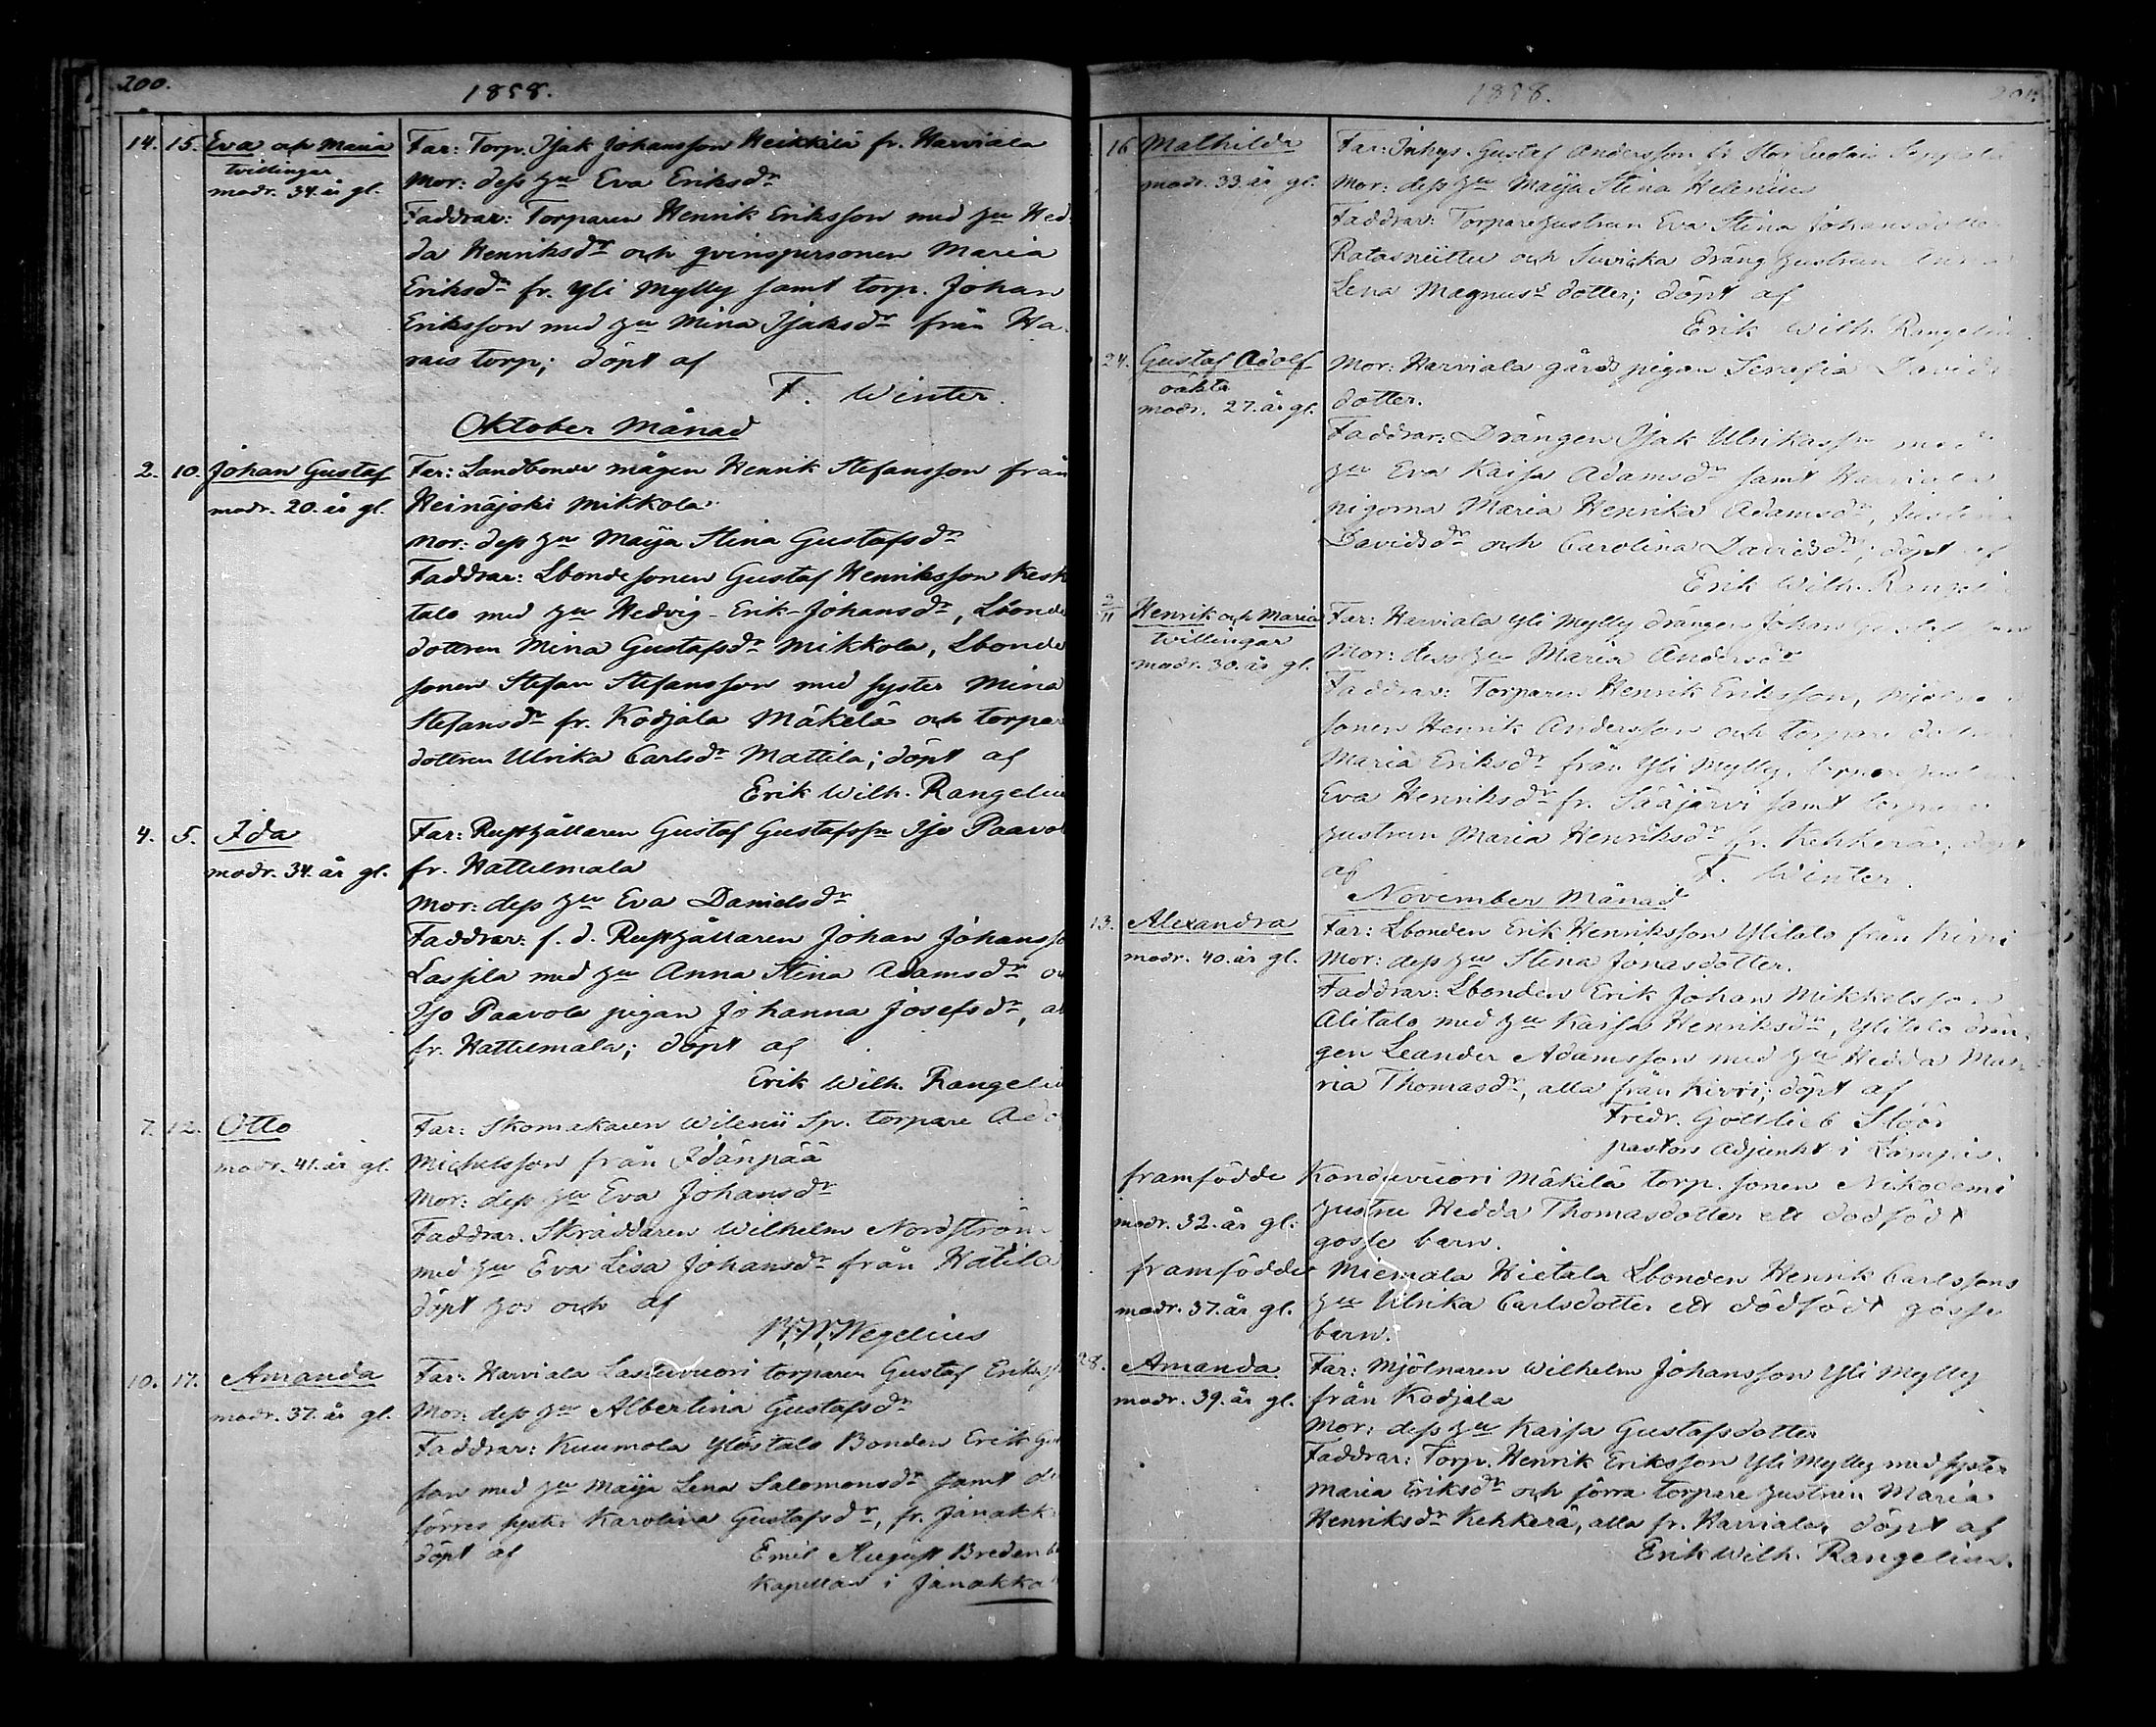 200.
1858.
14. 15. Eva och Maria Far: Torp. Isak Johansson Heikkilä fr. Harviala
tvillingar
modr. 34. år gl. Mor: dess hu Eva Eriksdr
Faddrar: Torparen Henrik Eriksson med hu Hed
da Henriksdr och qvinspersonen Maria
Eriksdr fr. Yli Mylly samt torp. Johan
Eriksson med hu Mina Isaksdr från Ha
rais torp; döpt af
F. Winter.
Oktober Månad
2. 10. Johan Gustaf Far: Landbonde mågen Henrik Stefansson från
modr. 20. år gl. Heinäjoki Mikkola
Mor: dess hu Maija Stina Gustafsdr
Faddrar: Lbondesonen Gustaf Henriksson Kesk
talo med hu Hedvig Erik-Johansdr, Lbonde
dottren Mina Gustafsdr Mikkola, Lbonde
sonen Stefan Stefansson med syster Mina
Stefansdr fr. Kodjala Mäkelä och torpar
dottren Ulrika Carlsdr Mattila; döpt af
Erik Wilh. Rangeliu
4. 5. Ida Far: Rusthållaren Gustaf Gustafssn Iso Paavol
modr. 34. år gl. fr. Hattelmala
Mor: dess hu Eva Danielsdr
Faddrar: f. d. Rusthållaren Johan Johansso
Lassila med hu Anna Stina Adamsdr oc
Iso Paavola pigan Johanna Josefsdr, al
fr. Hattelmala; döpt af
Erik Wilh. Rangeliu
7. 12. Otto Far: Skomakaren Wilenii Sp. torpare Ado
modr. 41. år gl. Michelsson från Idänpää
Mor: dess hu Eva Johansdr
Faddrar. Skräddaren Wilhelm Nordström
med hu Eva Lisa Johansdr från Hätilä
döpt hos och af
Wegelius
10. 17. Amanda Far: Harviala Laskuvuori torparen Gustaf Erikss
modr. 37. år gl. Mor: dess hu Albertina Gustafsdr
Faddrar: Kuumola Ylöstalo Bonden Erik Gu
son med hu Maija Lena Salomonsdr samt d
förres syster Karolina Gustafsdr, fr. Janakk
döpt af Emil August Bredenb
Kapellan i Janakka
1858.
201.
16 Mathilda Far: Inhys. Gustaf Andersson fr Stor
modr. 33. år gl. Mor: dess hu Maija Stina Helenius
Faddrar: Torparehustrun Eva Stina Johansdotter
Ratasniittu och Suvicka dräng hustrun
Lena Magnusdotter; döpt af
Erik Wilh. Rangeliu
24. Gustaf Adolf Mor: Harviala gårds pigan Serafia Davids
oäkta
modr. 27. år gl. dotter.
Faddrar: Drängen Isak Ulrikassn med
hu Eva Kaisa Adamsdr samt Harviala
pigorna Maria Henrika Adamsdr,
Davidsdr och Carolina Davidsdr; döpt af
Erik Wilh. Rangeli
2/11 Henrik och Maria Far: Harviala Yli Mylly drängen Johan
tvillingar
modr. 30. år gl. Mor: dess hu Maria Andersdr
Faddrar: Torparen Henrik Eriksson, Mjölna
sonen Henrik Andersson och torpare dott
Maria Eriksdr från Yli Mylly,
Eva Henriksdr fr. Sääjärvi samt torpare
hustrun Maria Henriksdr fr. Kehkerä; döpt
af F. Winter.
November Månad
13. Alexandra Far: Lbonden Erik Henriksson Ylitalo från Kirri
modr. 40. år gl. Mor: dess hu Stina Jonasdotter.
Faddrar: Lbonden Erik Johan Mikkelsson
Alitalo med hu Kaisa Henriksdr, Ylitalo drän
gen Leander Adamsson med hu Hedda Ma
ria Thomasdr, alla från Kirri; döpt af
Fredr. Gottlieb Slöör
pastors Adjunkt i Lampis.
framfödde Konduvuori Mäkilä torp. sonen Nikodemi
modr. 32. år gl: hustru Hedda Thomasdotter ett dödfödt
gosse barn.
framfödde Miemala Hietala Lbonden Henrik Carlssons
modr. 37. år gl. hu Ulrika Carlsdotter ett dödfödt gosse
barn.
28. Amanda Far: Mjölnaren Wilhelm Johansson Yli Mylly
modr. 39. år gl. från Kodjala
Mor: dess hu Kaisa Gustafsdotter
Faddrar: Torp. Henrik Eriksson Yli Mylly med syster
Maria Eriksdr och förra torpare hustrun Maria
Henriksdr Kehkerä, alla fr. Harviala, döpt af
Erik Wilh. Rangelius.